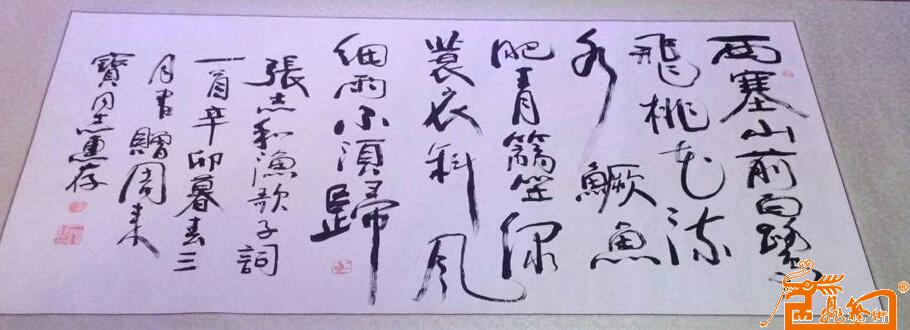 西塞山前白鷺
飛桃花流
水鱖魚
肥青篛笠绿
蓑衣斜风
細雨不須歸
張志和漁歌子詞
一首辛卯暮春三
月书贈周来
寳同志惠存